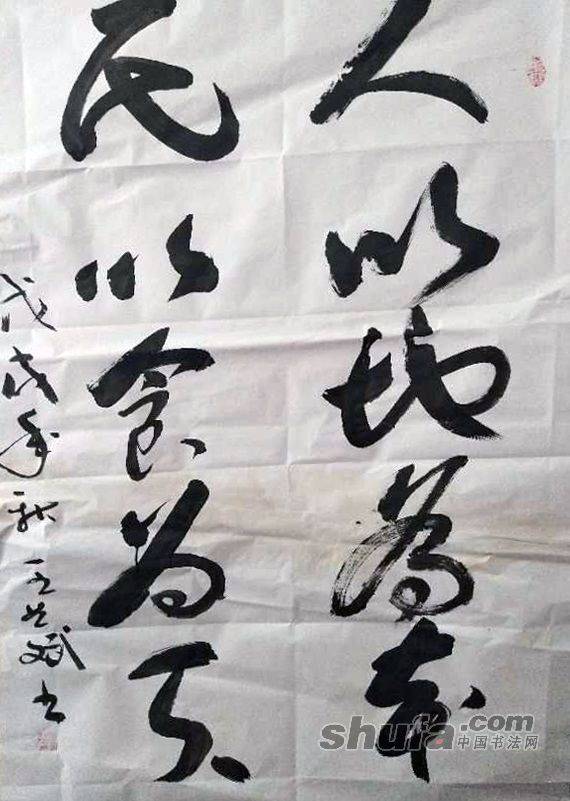 人以地为本
民以食为天
戊戌年秋王世斌书
shufa.com
中国书法网